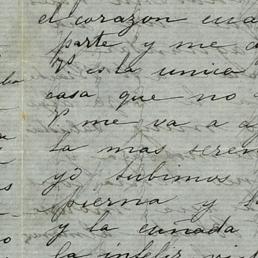 el corazon cua
parte y me a
es la unica
casa que no
me va a a
la mas seren
yo subimos
pierna y l
y la cuñada
la infeliz vi